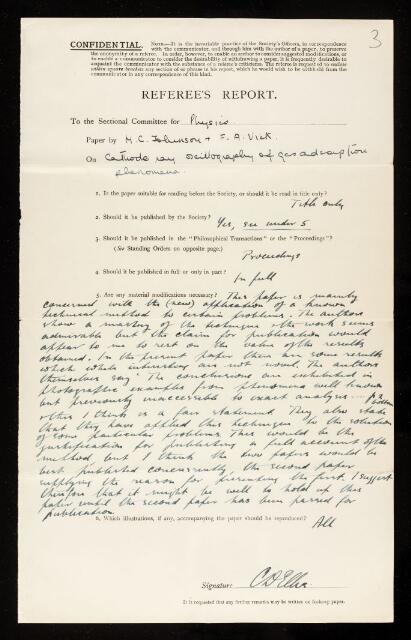 3
CONFIDENTIAL. NOTE.—It is the invariable practice of the Society's Officers, in correspondence
with the communicator, and through him with the author of a paper, to preserve
the anonymity of a referee. In order, however, to enable an author to consider suggested modifications, or
to enable a communicator to consider the desirability of withdrawing a paper, it is frequently desirable to
acquaint the communicator with the substance of a referee's criticisms. The referee is requested to enclose
within square brackets any section of or phrase in his report, which he would wish to be withheld from the
communicator in any correspondence of this kind.
REFEREE'S REPORT.
To the Sectional Committee for Physics
Paper by M. C. Johnson + F. A. Vick.
On Cathode ray oscillography of gas adsorption
phenomena.
1. Is the paper suitable for reading before the Society, or should it be read in title only?
Title only
2. Should it be published by the Society? Yes, see under 5
3. Should it be published in the "Philosophical Transactions" or the "Proceedings"?
(See Standing Orders on opposite page.)
Proceedings
4. Should it be published in full or only in part?
In full
5. Are any material modifications necessary? This paper is mainly
concerned with the (new) application of a known
technical method to certain problems. The authors
show a mastery of the technique & the work seems
admirable but the claim for publication would
appear to me to rest on the value of the results
obtained. In the present paper there are some results
which while interesting are not novel. The authors
themselves say "The conclusions are exhibited in
photographic examples from phenomena well known
but previously inaccessible to exact analysis"
& this I think is a fair statement. They also state
that they have applied this technique to the solution
of some particular problems. This would be the
justification for publishing a full account of the
method but I think the two papers would be
best published concurrently, the second paper
supplying the reason for presenting the first. I suggest
therefore that it might be well to hold up this
paper until the second paper has been passed for
publication.
6. Which illustrations, if any, accompanying the paper should be reproduced?
All
Signature C D Ellis.
It is requested that any further remarks may be written on foolscap paper.